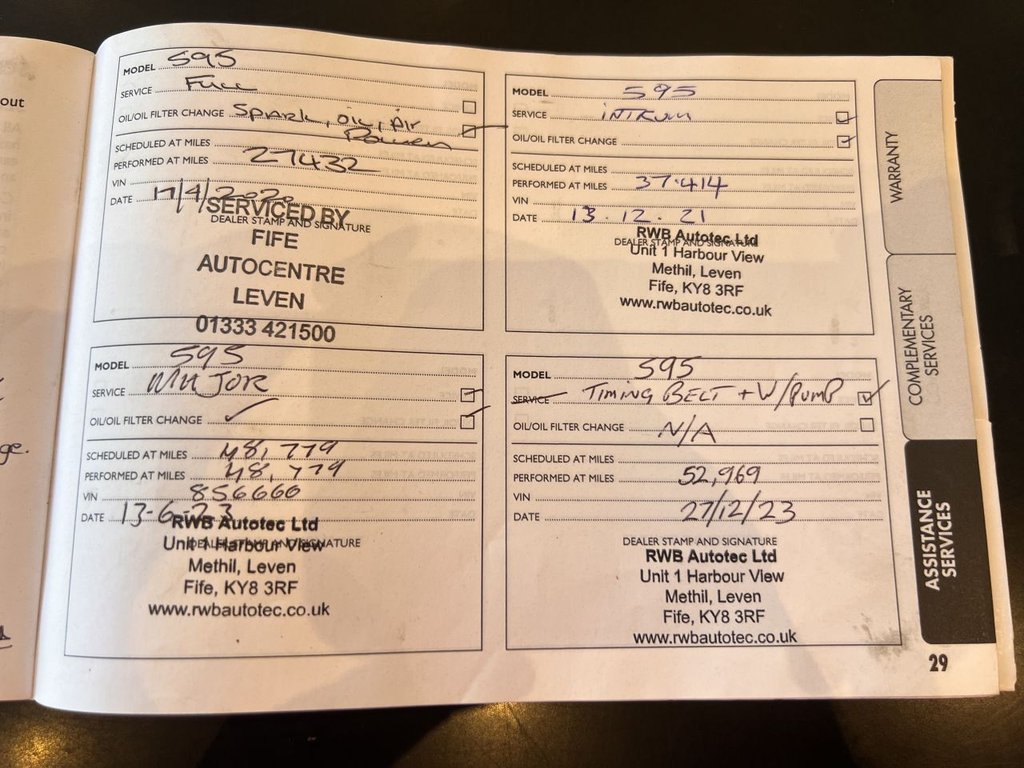 out
ge.
MODEL 595
SERVICE Full
OIL/OIL FILTER CHANGE Spark, oil, Air
Pollen
SCHEDULED AT MILES
PERFORMED AT MILES 27432
VIN
DATE 17/4/2020
SERVICED BY
DEALER STAMP AND SIGNATURE
FIFE
AUTOCENTRE
LEVEN
01333 421500
MODEL 595
SERVICE iNTRUM
OIL/OIL FILTER CHANGE
SCHEDULED AT MILES
PERFORMED AT MILES 37.414
VIN
DATE 13.12.21
RWB Autotec Ltd
DEALER STAMP AND SIGNATURE
Unit 1 Harbour View
Methil, Leven
Fife, KY8 3RF
www.rwbautotec.co.uk
MODEL 595
SERVICE MAJOR
OIL/OIL FILTER CHANGE ✓
SCHEDULED AT MILES 48,779
PERFORMED AT MILES 48,779
VIN 856660
DATE 13-6-23
RWB Autotec Ltd
DEALER STAMP AND SIGNATURE
Unit 1 Harbour View
Methil, Leven
Fife, KY8 3RF
www.rwbautotec.co.uk
MODEL 595
SERVICE TIMING BELT + W/PUMP
OIL/OIL FILTER CHANGE N/A
SCHEDULED AT MILES
PERFORMED AT MILES 52,969
VIN
DATE 27/12/23
DEALER STAMP AND SIGNATURE
RWB Autotec Ltd
Unit 1 Harbour View
Methil, Leven
Fife, KY8 3RF
www.rwbautotec.co.uk
WARRANTY
COMPLEMENTARY
SERVICES
ASSISTANCE
SERVICES
29